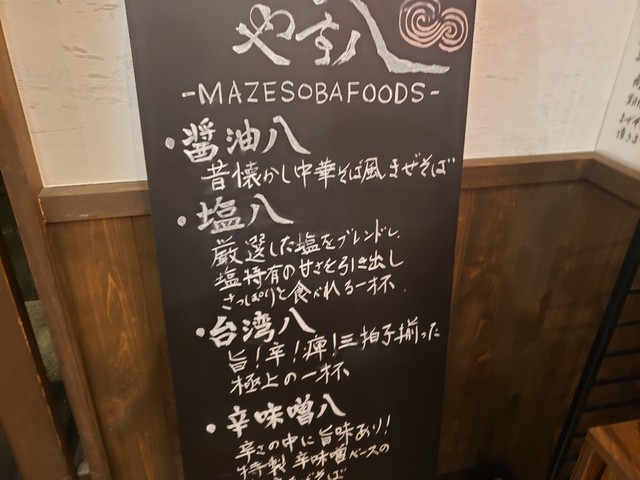 やす八
-MAZESOBAFOODS-
・醤油八
昔懐かし中華そば風まぜそば
・塩八
厳選した塩をブレンドし、
塩特有の甘さを引き出し
さっぱりと食べれる一杯
・台湾八
旨!辛!痺!三拍子揃った
極上の一杯
・辛味噌八
辛さの中に旨味あり!
特製辛味噌ベースの
まぜそば